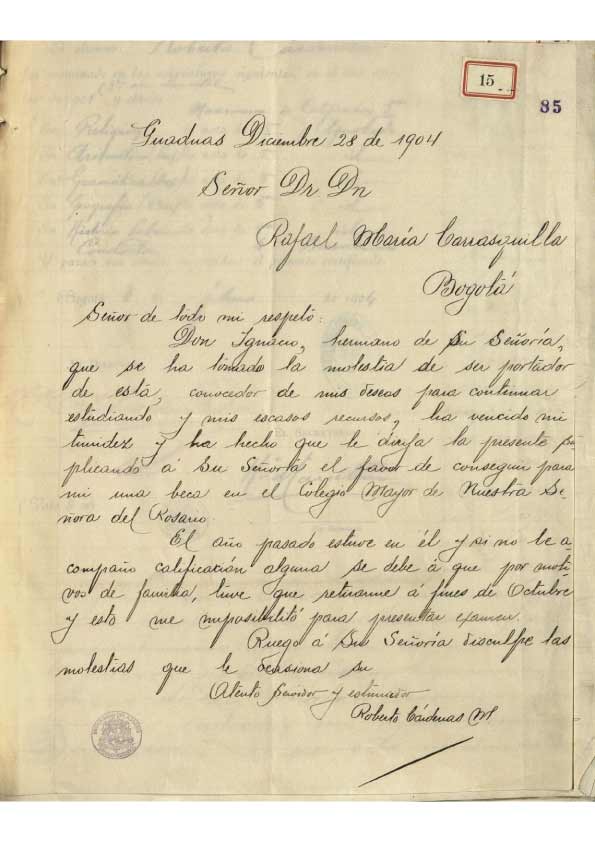 15
85
Guaduas Diciembre 28 de 1904
Señor Dr. Dn
Rafael María Carrasquilla
Bogotá
Señor de todo mi respeto:
Don Ignacio, hermano de Su Señoría,
que se ha tomado la molestia de ser portador
de esta, conocedor de mis deseos para continuar
estudiando y mis escasos recursos, ha vencido mi
timidez y ha hecho que le dirija la presente su-
plicando á Su Señoría el favor de conseguir para
mi una beca en el Colegio Mayor de Nuestra Se-
ñora del Rosario.
El año pasado estuve en él y si no le a-
compaño calificación alguna se debe á que por moti-
vos de familia, tuve que retirarme á fines de Octubre
y esto me imposibilitó para presentar examen.
Ruego á Su Señoría disculpe las
molestias que le ocasiona su
Atento servidor y estimador
Roberto Cárdenas M.